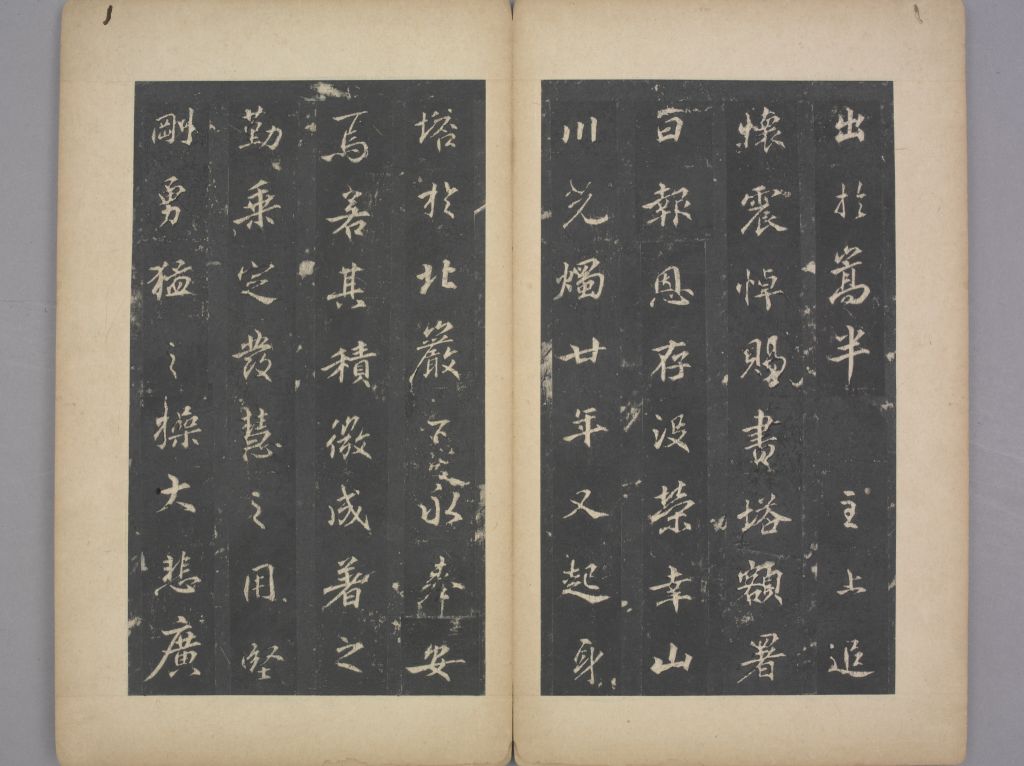 出於嵩半主上追
懷震悼賜書塔額署
曰報恩存没榮幸山
川光燭廿年又起身
塔於北巖下
永奉安
焉若其積微成著之
勤乗定發慧之用堅
剛勇猛之操大悲廣